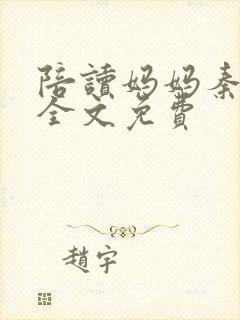 陪讀媽媽秦
全文免費
趙宇